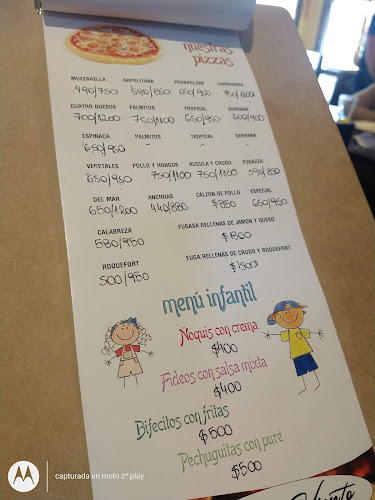 nuestras
pizzas
MUZZARELLA NAPOLITANA PROVOLONE CARBONARA
490/750 590/850 650/900 750/1100
CUATRO QUESOS PALMITOS TROPICAL SERRANA
700/1200 750/1100 650/950 600/900
ESPINACA PALMITOS TROPICAL SERRANA
650/950 - - -
VEGETALES POLLO Y HONGOS RUCULA Y CRUDO FUGAZZA
650/950 750/1100 750/1100 590/850
DEL MAR ANCHOAS CALZON DE POLLO ESPECIAL
650/1200 440/880 $850 650/950
CALABREZA FUGASA RELLENAS DE JAMON Y QUESO
580/950 $1300
ROQUEFORT FUGA RELLENAS DE CRUDO Y ROQUEFORT
500/950 $1500
menú infantil
Ñoquis con crema
$400
Fideos con salsa mixta
$400
Bifecitos con fritas
$500
Pechuguitas con puré
$500
capturada en moto z² play